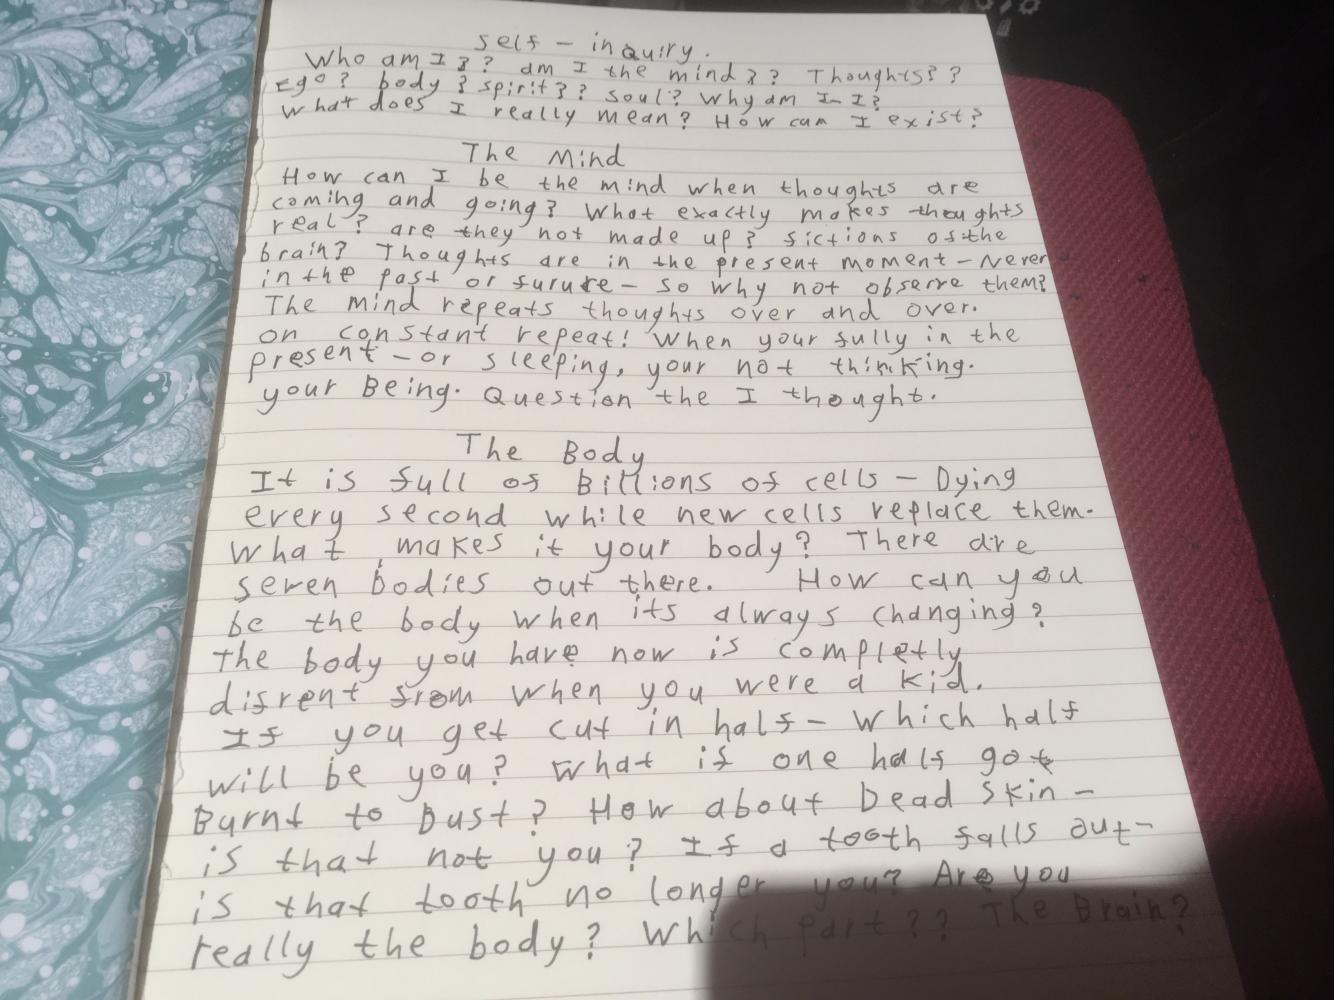 self - inquiry.
Who am I?? am I the mind?? Thoughts??
Ego? body? spirit?? soul? Why am I - I?
What does I really mean? How can I exist?
The Mind
How can I be the mind when thoughts are
coming and going? What exactly makes thoughts
real? are they not made up? fictions of the
brain? Thoughts are in the present moment - Never
in the past or furure - so why not observe them?
The mind repeats thoughts over and over.
on constant repeat! When your fully in the
present - or sleeping, your not thinking.
your Being. Question the I thought.
The Body
It is full of Billions of cells - Dying
every second while new cells replace them.
What makes it your body? There are
seven bodies out there. How can you
be the body when its always changing?
the body you have now is completly
difrent from when you were a kid.
If you get cut in half - which half
will be you? What if one half got
Burnt to Dust? How about Dead skin -
is that not you? If a tooth falls out -
is that tooth no longer you? Are you
really the body? Which part?? The Brain?